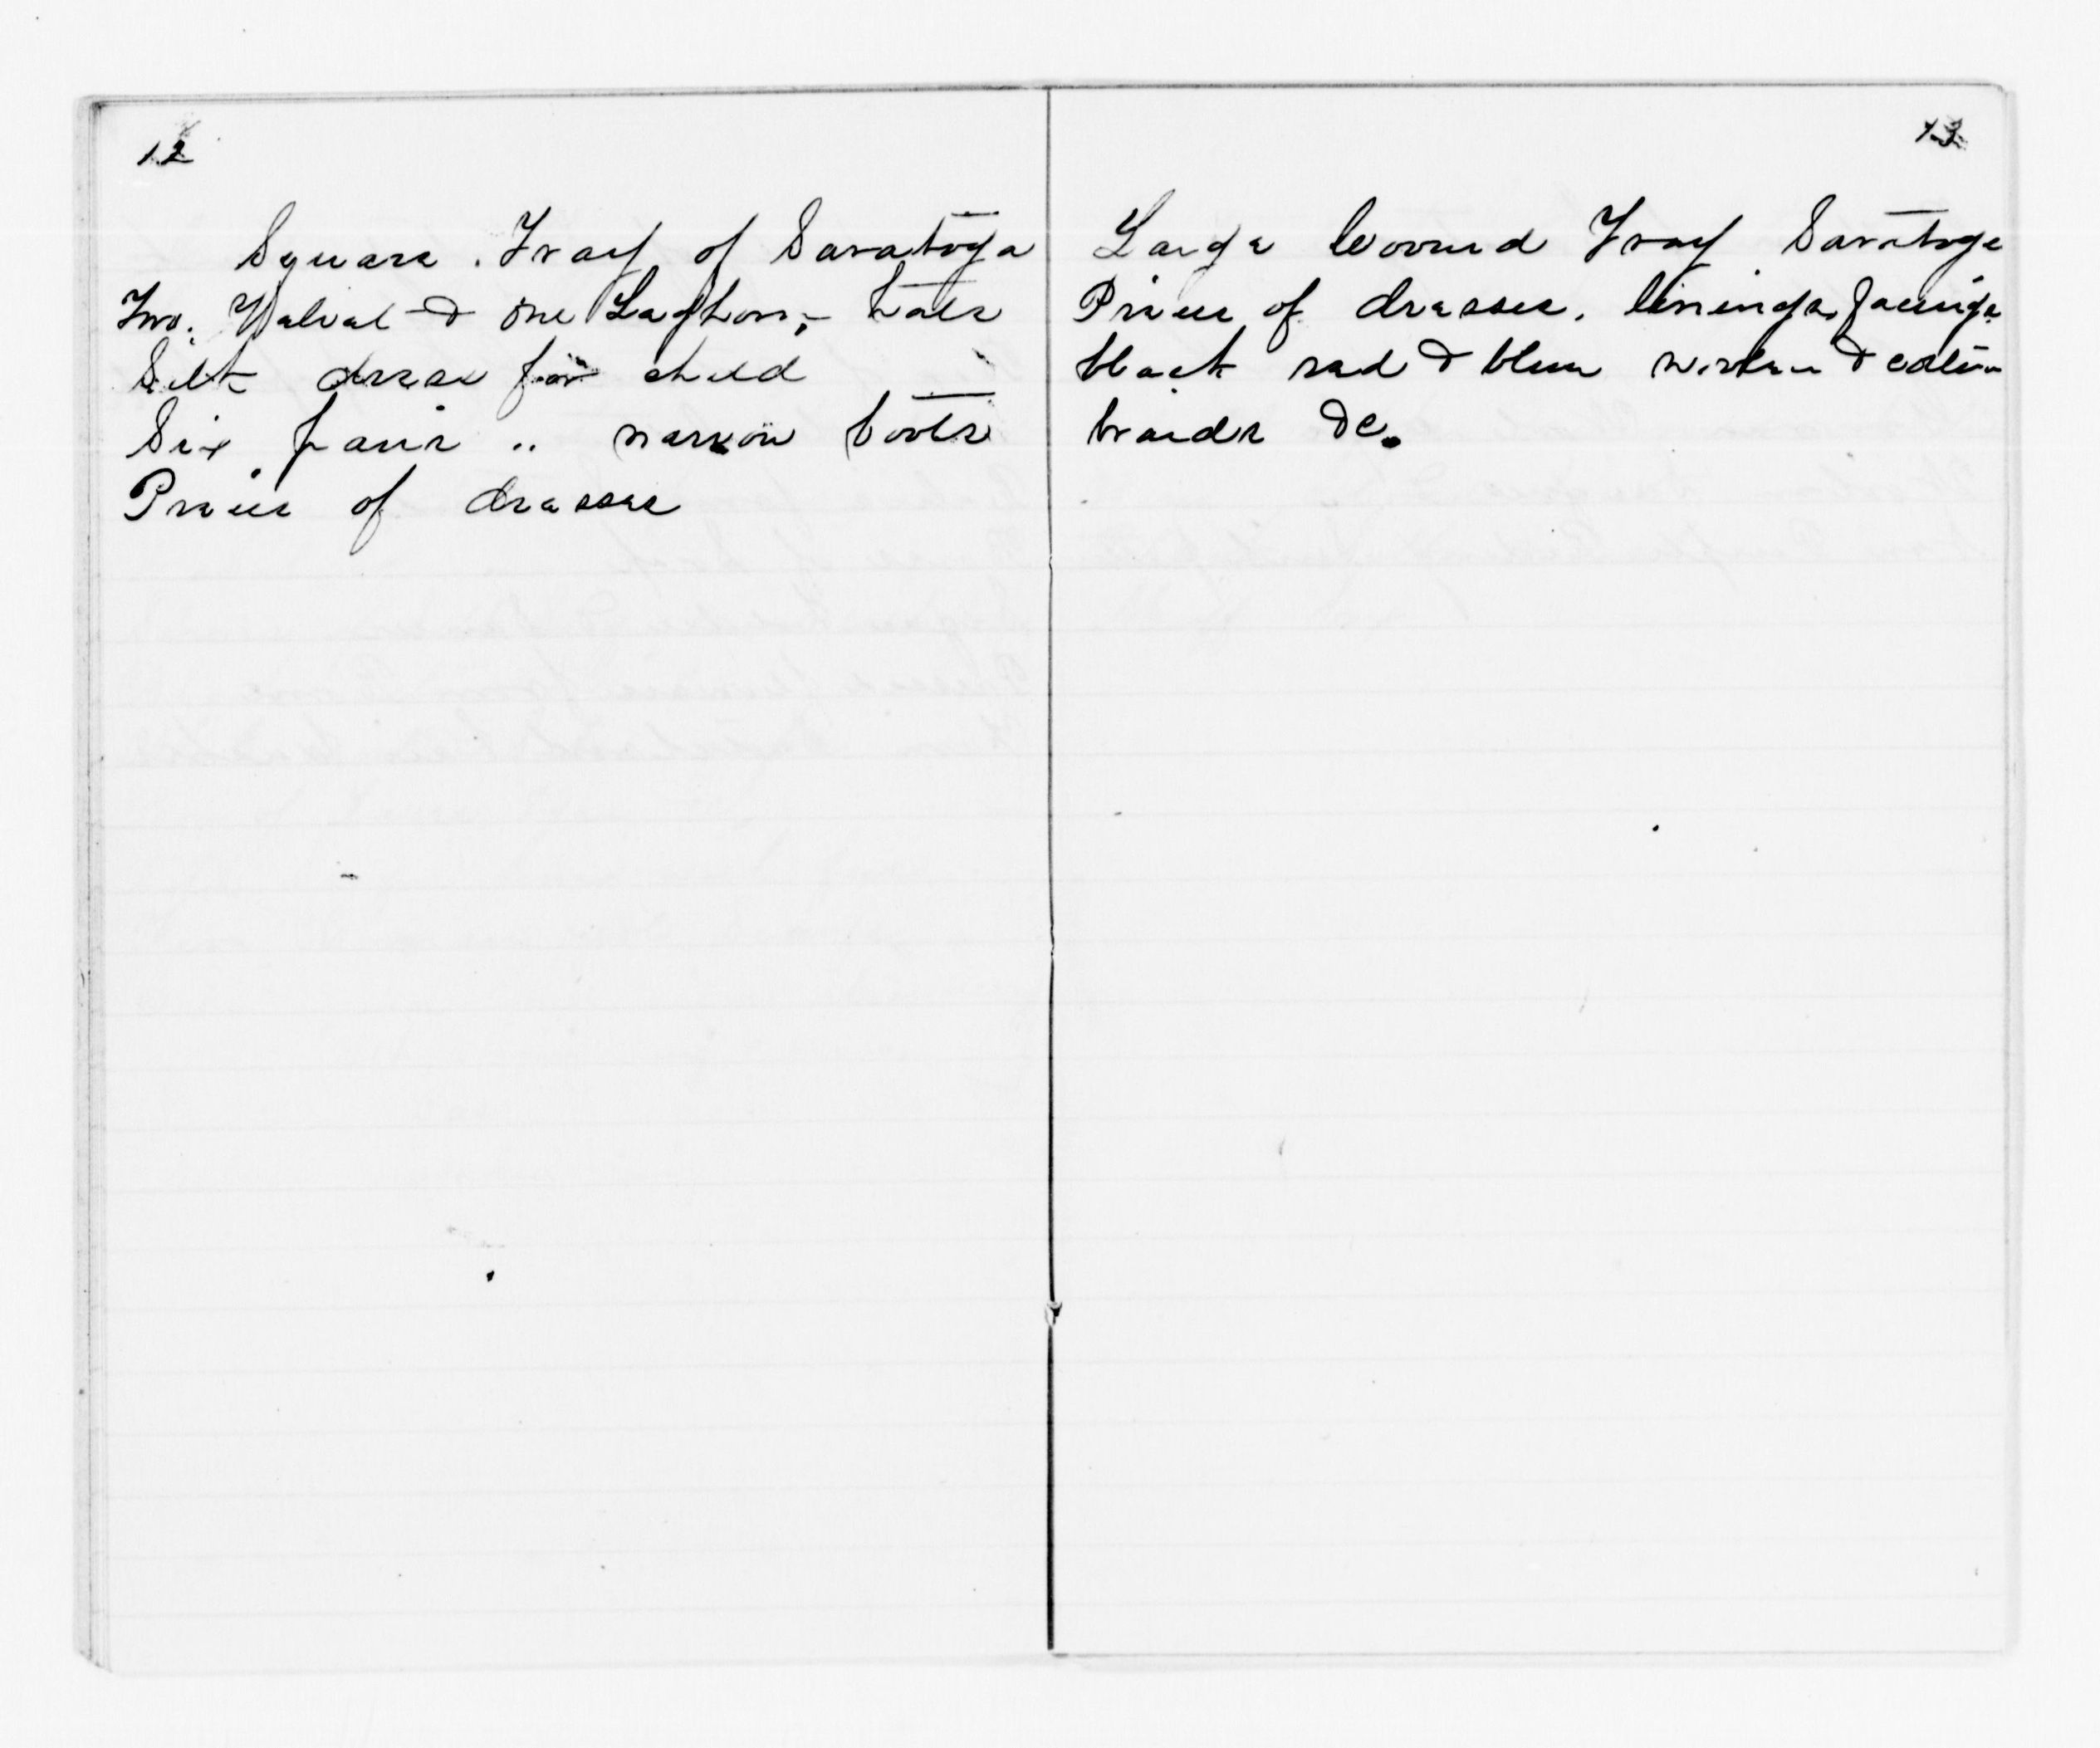 12
Square . Tray of Saratoga
Two. Velvet & one Leghorn, hats
Silk dress for child
Six pair " narrow boots
Pieces of dresses
13
Large Covered Tray Saratoga
Pieces of dresses, linings, facings
black red & blue woolen & cotton
braids &c.